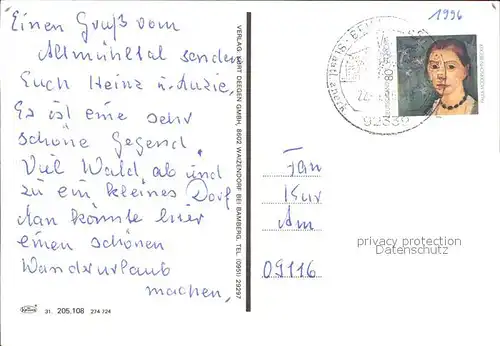 Einen Gruß vom
Altmühltal senden
Euch Heinz u.
Es ist eine sehr
schöne Gegend.
Viel Wald, ab und
zu ein kleines Dorf
Man könnte hier
einen schönen
Wanderurlaub
machen.
31. 205,108 274 724
VERLAG KURT DEEGEN GMBH, 8602 WAIZENDORF BEI BAMBERG, TEL. (0951) 29297
1996
80
92339
Fam
Kur
Am
09116
privacy protection
Datenschutz